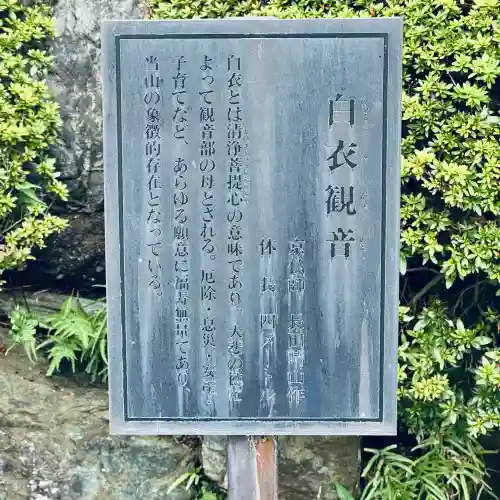 白衣観音
京仏師 長田晴山作
体長四メートル
白衣とは清浄菩提心の意味であり、大悲の徳に
よって観音部の母とされる。厄除・息災・安産・
子育てなど、あらゆる願意に福寿無量であり、
当山の象徴的存在となっている。